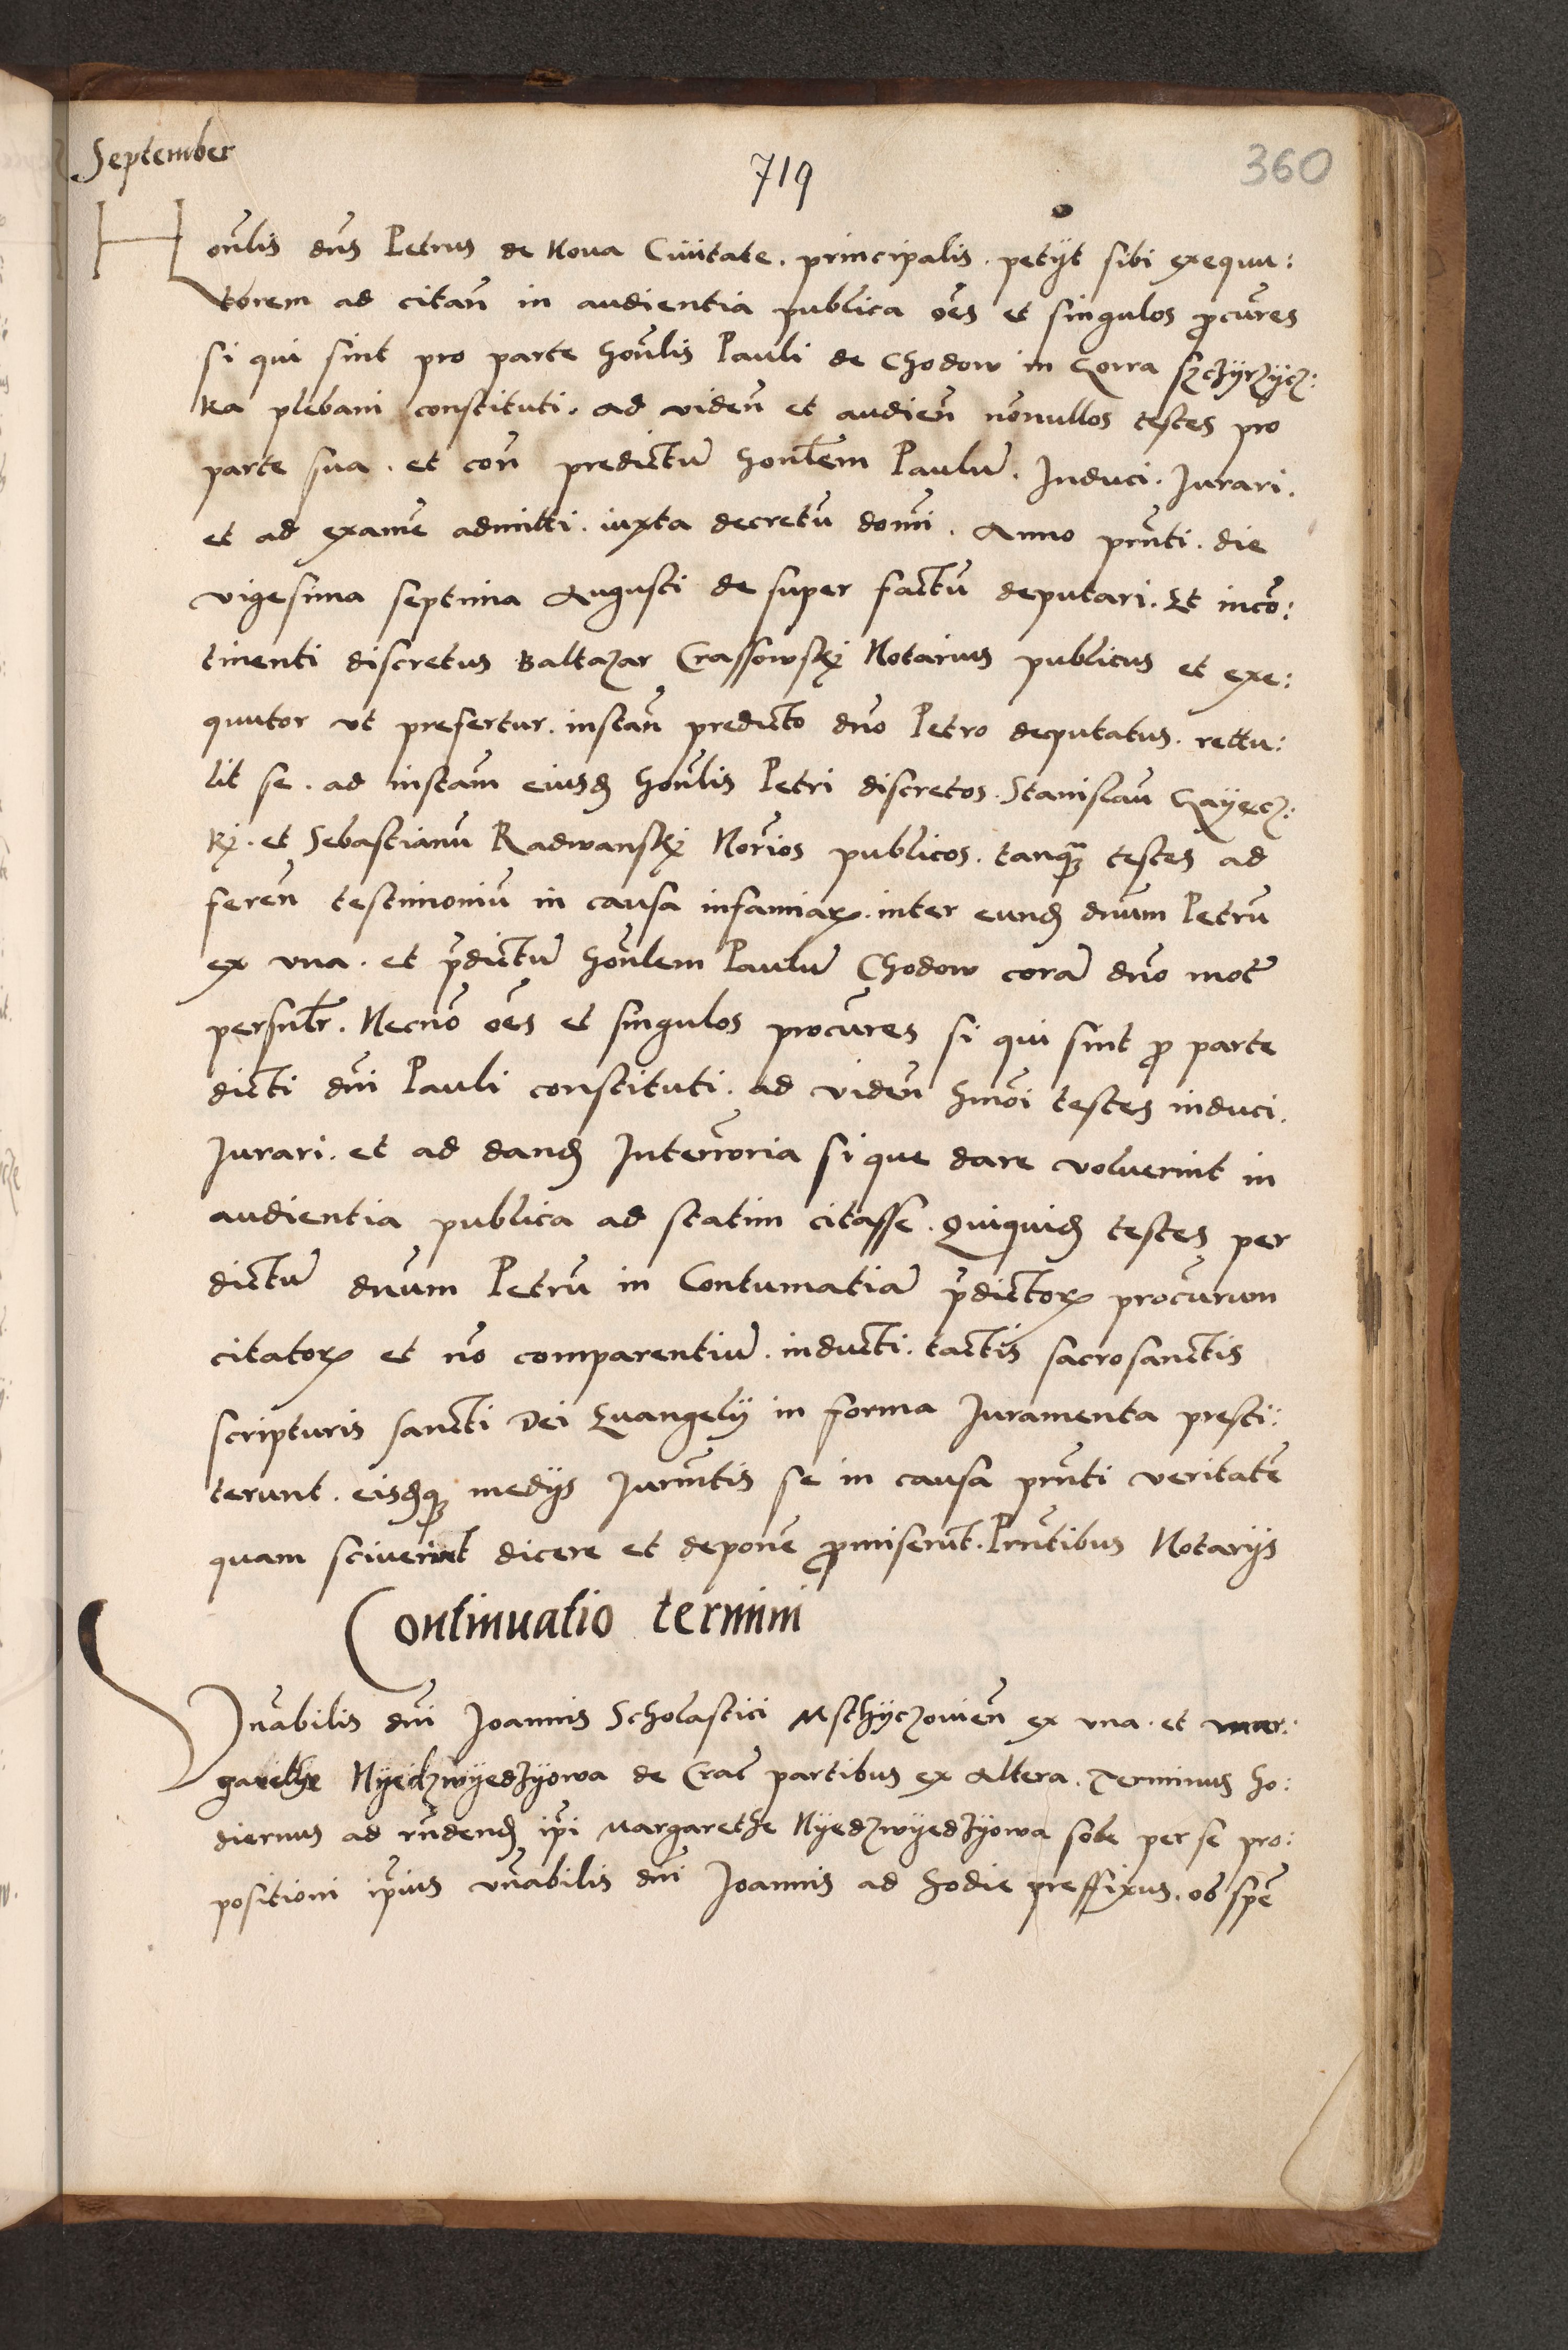 September
719
360
Honlis dns Petrus de Noua Ciuitate. principalis. petyt sibi exequu:
torem ad citan in audientia publica oes et singulos pcures
si qui sint pro parte honlis Pauli de Chodow in Gorra
ka plebani constituti. ad viden et audien nonullos testes pro
parte sua. et con predictu honlem Paulu. Induci. Jurari.
et ad exame admitti. iuxta decretu domi. Anno prnti. die
vigesima septima Augusti de super factu deputari. Et inco:
tinenti discretus Baltazar Crassowsky Notarius publicus et exe:
quutor vt prefertur. instan predicto dno Petro deputatus. rettu:
lit se. ad instam eiusd honlis Petri discretos. Stanislau Gayecz:
ky. et Sebastianu Radwansky Norios publicos. tanq testes ad
feren testimoniu in causa infamiar. inter eund dnum Petru
ex vna. et pdictu honlem Paulu Chodow cora dno mot
persnlr. Necno oes et singulos procures si qui sint p parte
dicti dni Pauli constituti. ad viden hmoi testes induci.
Jurari. et ad dand Interroria si que dare voluerint in
audientia publica ad statim citasse. Quiquid testes per
dictu dnum Petru in Contumatia pdictor procurum
citator et no comparentiu. inducti. tactis sacrosanctis
scripturis sancti Dei Euangely in forma Juramenta presti:
terunt. eisdq medys Jurmtis se in causa prnti veritate
quam sciuerint dicere et depone pmiserut. Prntibus Notarys
Continuatio termini
Vnabilis dni Joannis Scholastici Msthyczouien ex vna. et mar:
garethe Nyedzwyedzyowa de Crac partibus ex altera. Terminus ho:
diernus ad rndend ipi Margarethe Nyedzwyedzyowa sole per se pro:
positioni ipius vnabilis dni Joannis ad hodie preffixus. ob spe